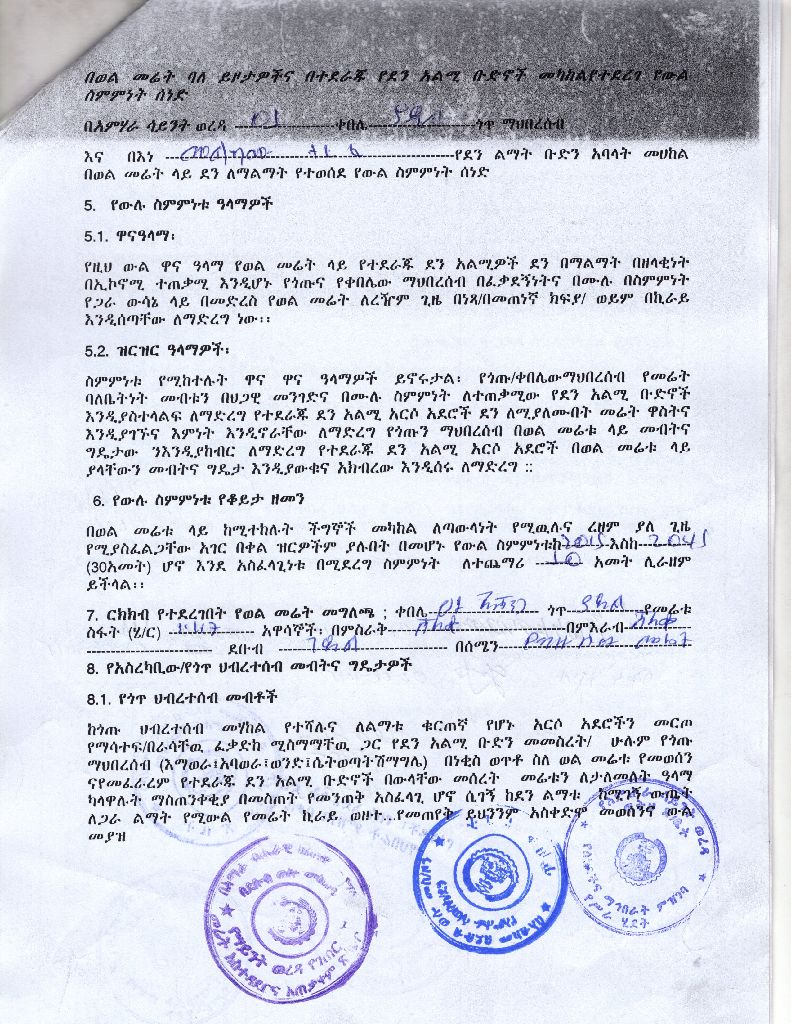 በወል መሬት ባለ ይዞታዎችና በተደራጁ የደን አልሚ ቡድኖች መካከልየተደረገ የውል
ስምምነት ሰነድ
በአምሃራ ሳይንት ወረዳ ------------------ቀበሌ------------------ጎጥ ማህበረሰብ
እና በእነ ------------------------------------የደን ልማት ቡድን አባላት መሀከል
በወል መሬት ላይ ደን ለማልማት የተወሰደ የውል ስምምነት ሰነድ
5. የውሉ ስምምነቱ ዓላማዎች
5.1. ዋናዓላማ፡
የዚህ ውል ዋና ዓላማ የወል መሬት ላይ የተደራጁ ደን አልሚዎች ደን በማልማት በዘላቂነት
በኢኮኖሚ ተጠቃሚ እንዲሆኑ የጎጡና የቀበሌው ማህበረሰብ በፈቃደኝነትና በሙሉ በስምምነት
የጋራ ውሳኔ ላይ በመድረስ የወል መሬት ለረዥም ጊዜ በነጻ/በመጠነኛ ክፍያ/ ወይም በኪራይ
እንዲሰጣቸው ለማድረግ ነው፡፡
5.2. ዝርዝር ዓላማዎች፡
ስምምነቱ የሚከተሉት ዋና ዋና ዓላማዎች ይኖሩታል፡ የጎጡ/ቀበሌውማህበረሰብ የመሬት
ባለቤትነት መብቱን በህጋዊ መንገድና በሙሉ ስምምነት ለተጠቃሚው የደን አልሚ ቡድኖች
እንዲያስተላልፍ ለማድረግ የተደራጁ ደን አልሚ አርሶ አደሮች ደን ለሚያለሙበት መሬት ዋስትና
እንዲያገኙና እምነት እንዲኖራቸው ለማድረግ የጎጡን ማህበረሰብ በወል መሬቱ ላይ መብትና
ግዴታው ንእንዲያከብር ለማድረግ የተደራጁ ደን አልሚ አርሶ አደሮች በወል መሬቱ ላይ
ያላቸውን መብትና ግዴታ እንዲያውቁና አክብረው እንዲሰሩ ለማድረግ ::
6. የውሉ ስምምነቱ የቆይታ ዘመን
በወል መሬቱ ላይ ከሚተከሉት ችግኞች መካከል ለጣውላነት የሚዉሉና ረዘም ያለ ጊዜ
የሚያስፈልጋቸው አገር በቀል ዝርዎችም ያሉበት በመሆኑ የውል ስምምነቱከ 2015 እስከ 2045
(30አመት) ሆኖ እንደ አስፈላጊነቱ በሚደረግ ስምምነት ለተጨማሪ ---10--- አመት ሊራዘም
ይችላል፡፡
7. ርክክብ የተደረገበት የወል መሬት መግለጫ ; ቀበሌ------------------ ጎጥ------------የመሬቱ
ስፋት (ሄ/ር) ------------ አዋሳኞች፡ በምስራቅ------------------------በምእራብ------------
------------------ ደቡብ ------------------------ በሰሜን------------------------
8. የአስረካቢው/የጎጥ ህብረተሰብ መብትና ግዴታዎች
8.1. የጎጥ ህብረተሰብ መብቶች
ከጎጡ ህብረተሰብ መሃከል የተሻሉና ለልማቱ ቁርጠኛ የሆኑ አርሶ አደሮችን መርጦ
የማሳተፍ/በራሳቸዉ ፈቃድከ ሚስማማቸዉ ጋር የደን አልሚ ቡድን መመስረት/ ሁሉም የጎጡ
ማህበረሰብ (እማወራ፤አባወራ፤ወንድ፤ሴትወጣትሽማግሌ) በነቂስ ወጥቶ ስለ ወል መሬቱ የመወሰን
ናየመፈራረም የተደራጁ ደን አልሚ ቡድኖች በውላቸው መሰረት መሬቱን ለታለመለት ዓላማ
ካላዋሉት ማስጠንቀቂያ በመስጠት የመንጠቅ አስፈላጊ ሆኖ ሲገኝ ከደን ልማቱ ከሚገኝ ውጤት
ለጋራ ልማት የሚውል የመሬት ኪራይ ወዘተ...የመጠየቅ ይህንንም አስቀድሞ መወሰንና ውል
መያዝ